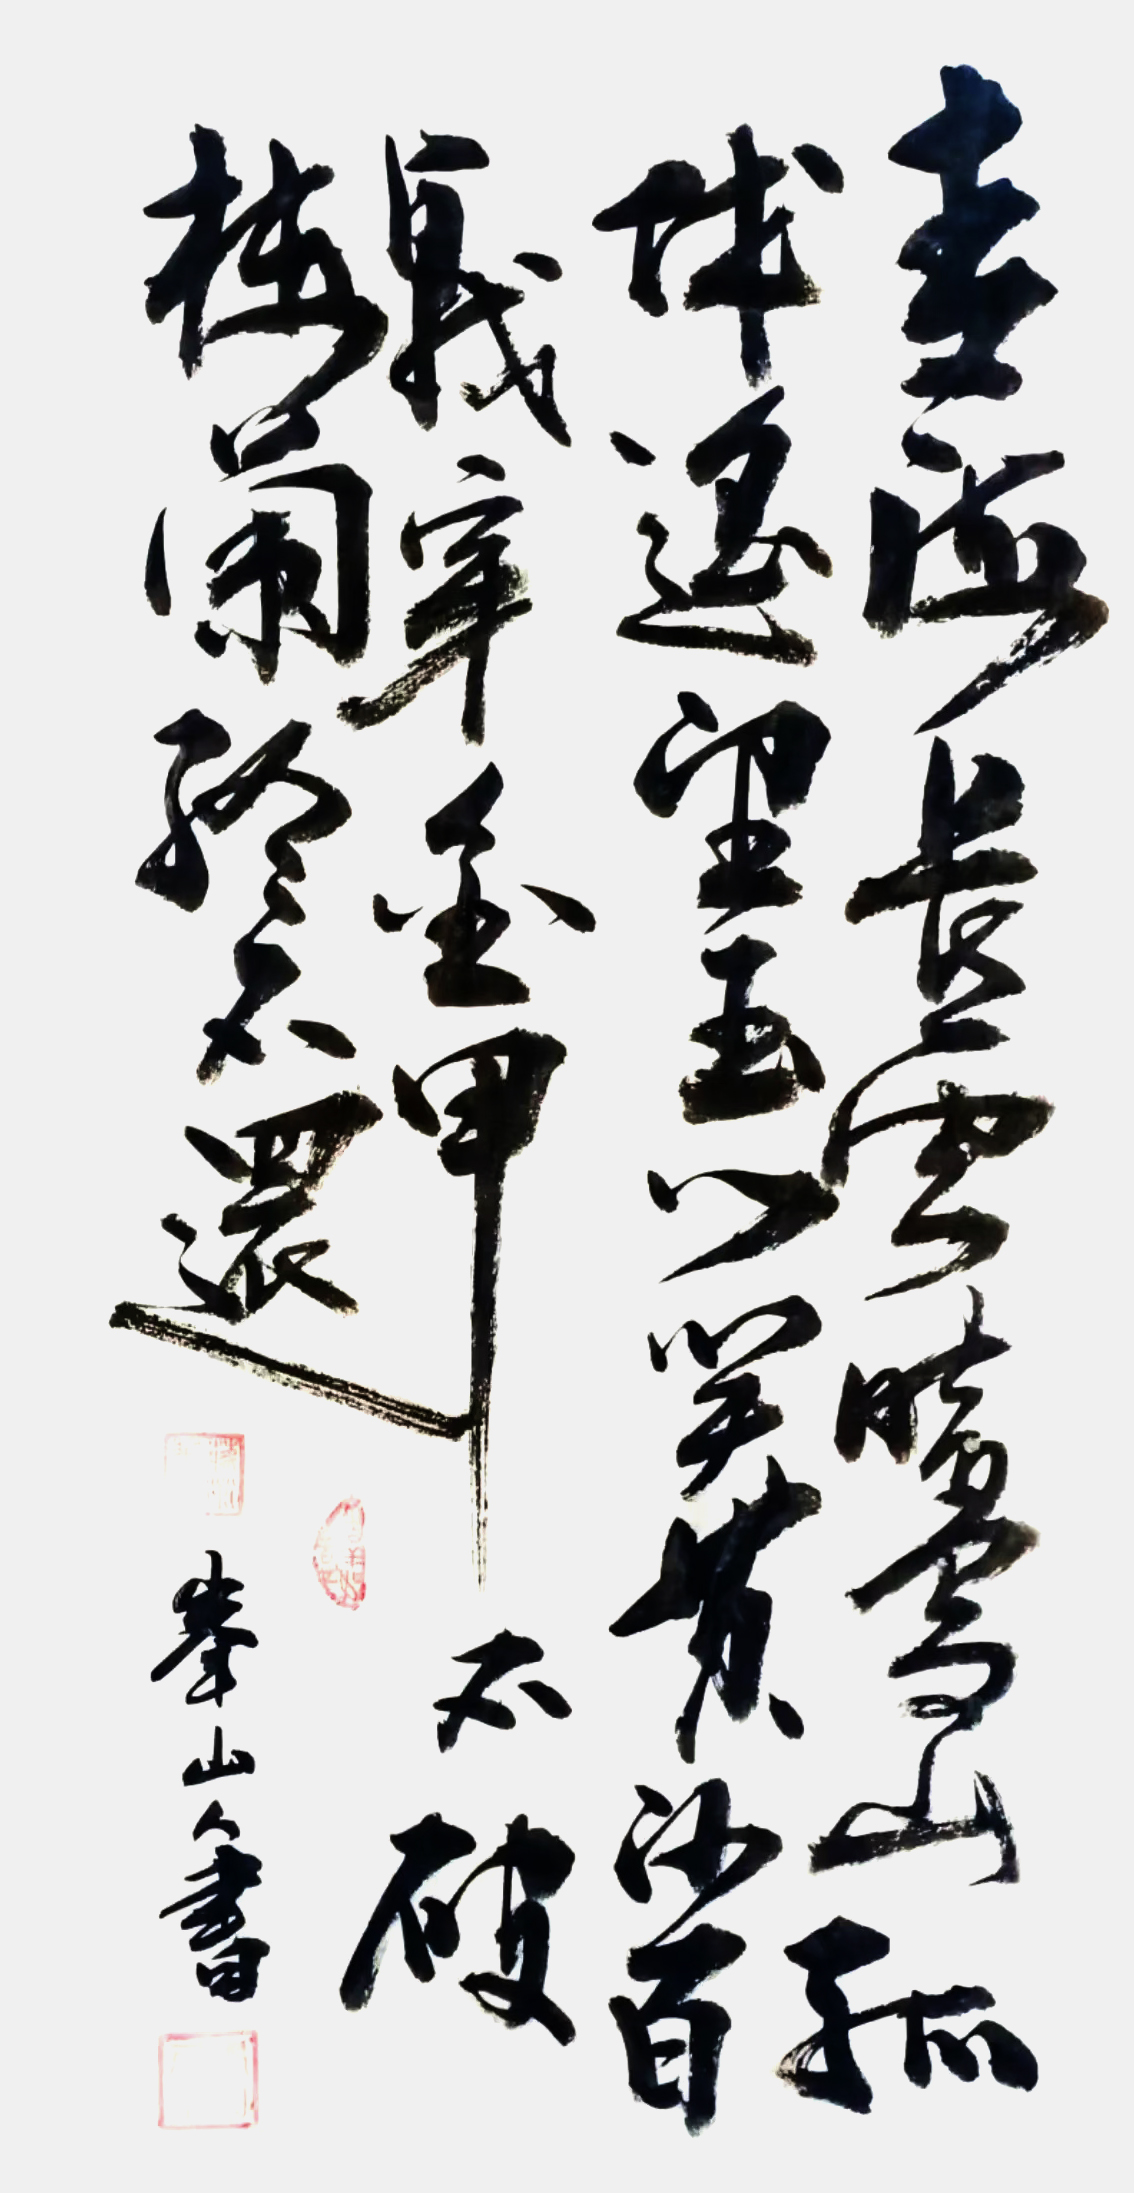 青海長雲暗雪山孤
城遥望玉門關黄沙百
戰穿金甲不破
樓蘭終不還
峯山書